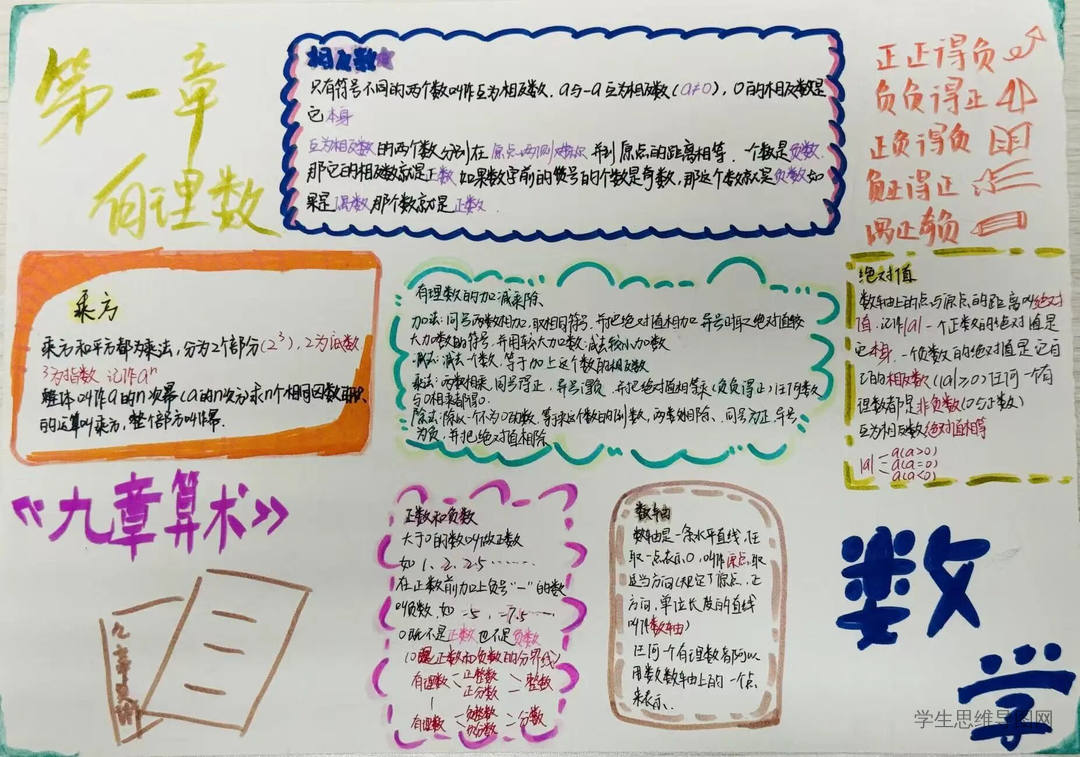 第一章
有理数
相反数
只有符号不同的两个数叫作互为相反数，a与-a互为相反数（a≠0），0的相反数是
它本身
互为相反数的两个数分别在原点两侧 并到原点的距离相等．一个数是负数，
那它的相反数就是正数，如果数字前的负号的个数是奇数，那这个数就是负数如
果是偶数那个数就是正数．
正正得负
负负得正
正负得负
负正得正
偶正奇负
乘方
乘方和平方都为乘法，分为2个部分（2³），2为底数
3为指数 记作aⁿ
整体叫作a的n次幂（a的n次方）求n个相同因数
的运算叫乘方，整个部分叫作幂．
有理数的加减乘除
加法：同号两数相加，取相同符号，并把绝对值相加 异号时取绝对值较
大加数的符号，并用较大加数减去较小加数
减法：减去一个数，等于加上这个数的相反数
乘法：两数相乘，同号得正，异号得负，并把绝对值相乘（负负得正）任何数
与0相乘都得0．
除法：除以一个不为0的数，等于乘这个数的倒数，两数相除，同号为正，异号
为负，并把绝对值相除
绝对值
数轴上的点与原点的距离叫绝对
值．记作|a| 一个正数的绝对值是
它本身．一个负数的绝对值是它自
己的相反数（|a|≥0）任何一个有
但数都是非负数（0与正数）
互为相反数绝对值相等
|a| a（a>0）
a（a=0）
a（a<0）
《九章算术》
九章算术
正数和负数
大于0的数叫做正数
如 1、2、2.5……
在正数前加上负号“-”的数
叫负数，如 -5、-7.5……
0既不是正数也不是负数
（0是正数和负数的分界线）
有理数 正整数 整数
正分数
有理数 负整数 分数
负分数
数轴
数轴是一条水平直线，任
取一点表示0，叫作原点，取
适当方向（规定了原点，正
方向，单位长度的直线
叫作数轴）
任何一个有理数都可以
用数数轴上的一个点
来表示．
数
学
学生思维导图网